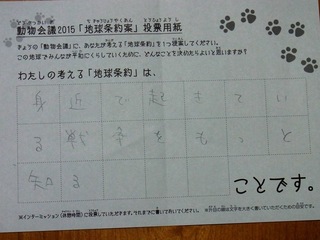 動物会議2015「地球条約案」投票用紙
きょうの「動物会議」に、あなたが考える「地球条約」を1つ提案してください。
この地球でみんなが平和にくらしていくために、どんなことを決めたらよいと思いますか?
わたしの考える「地球条約」は、
身近で起きてい
る戦争をもっと
知る
ことです。
※インターミッション(休憩時間)に投票していただきます。それまでに書いておいてください。